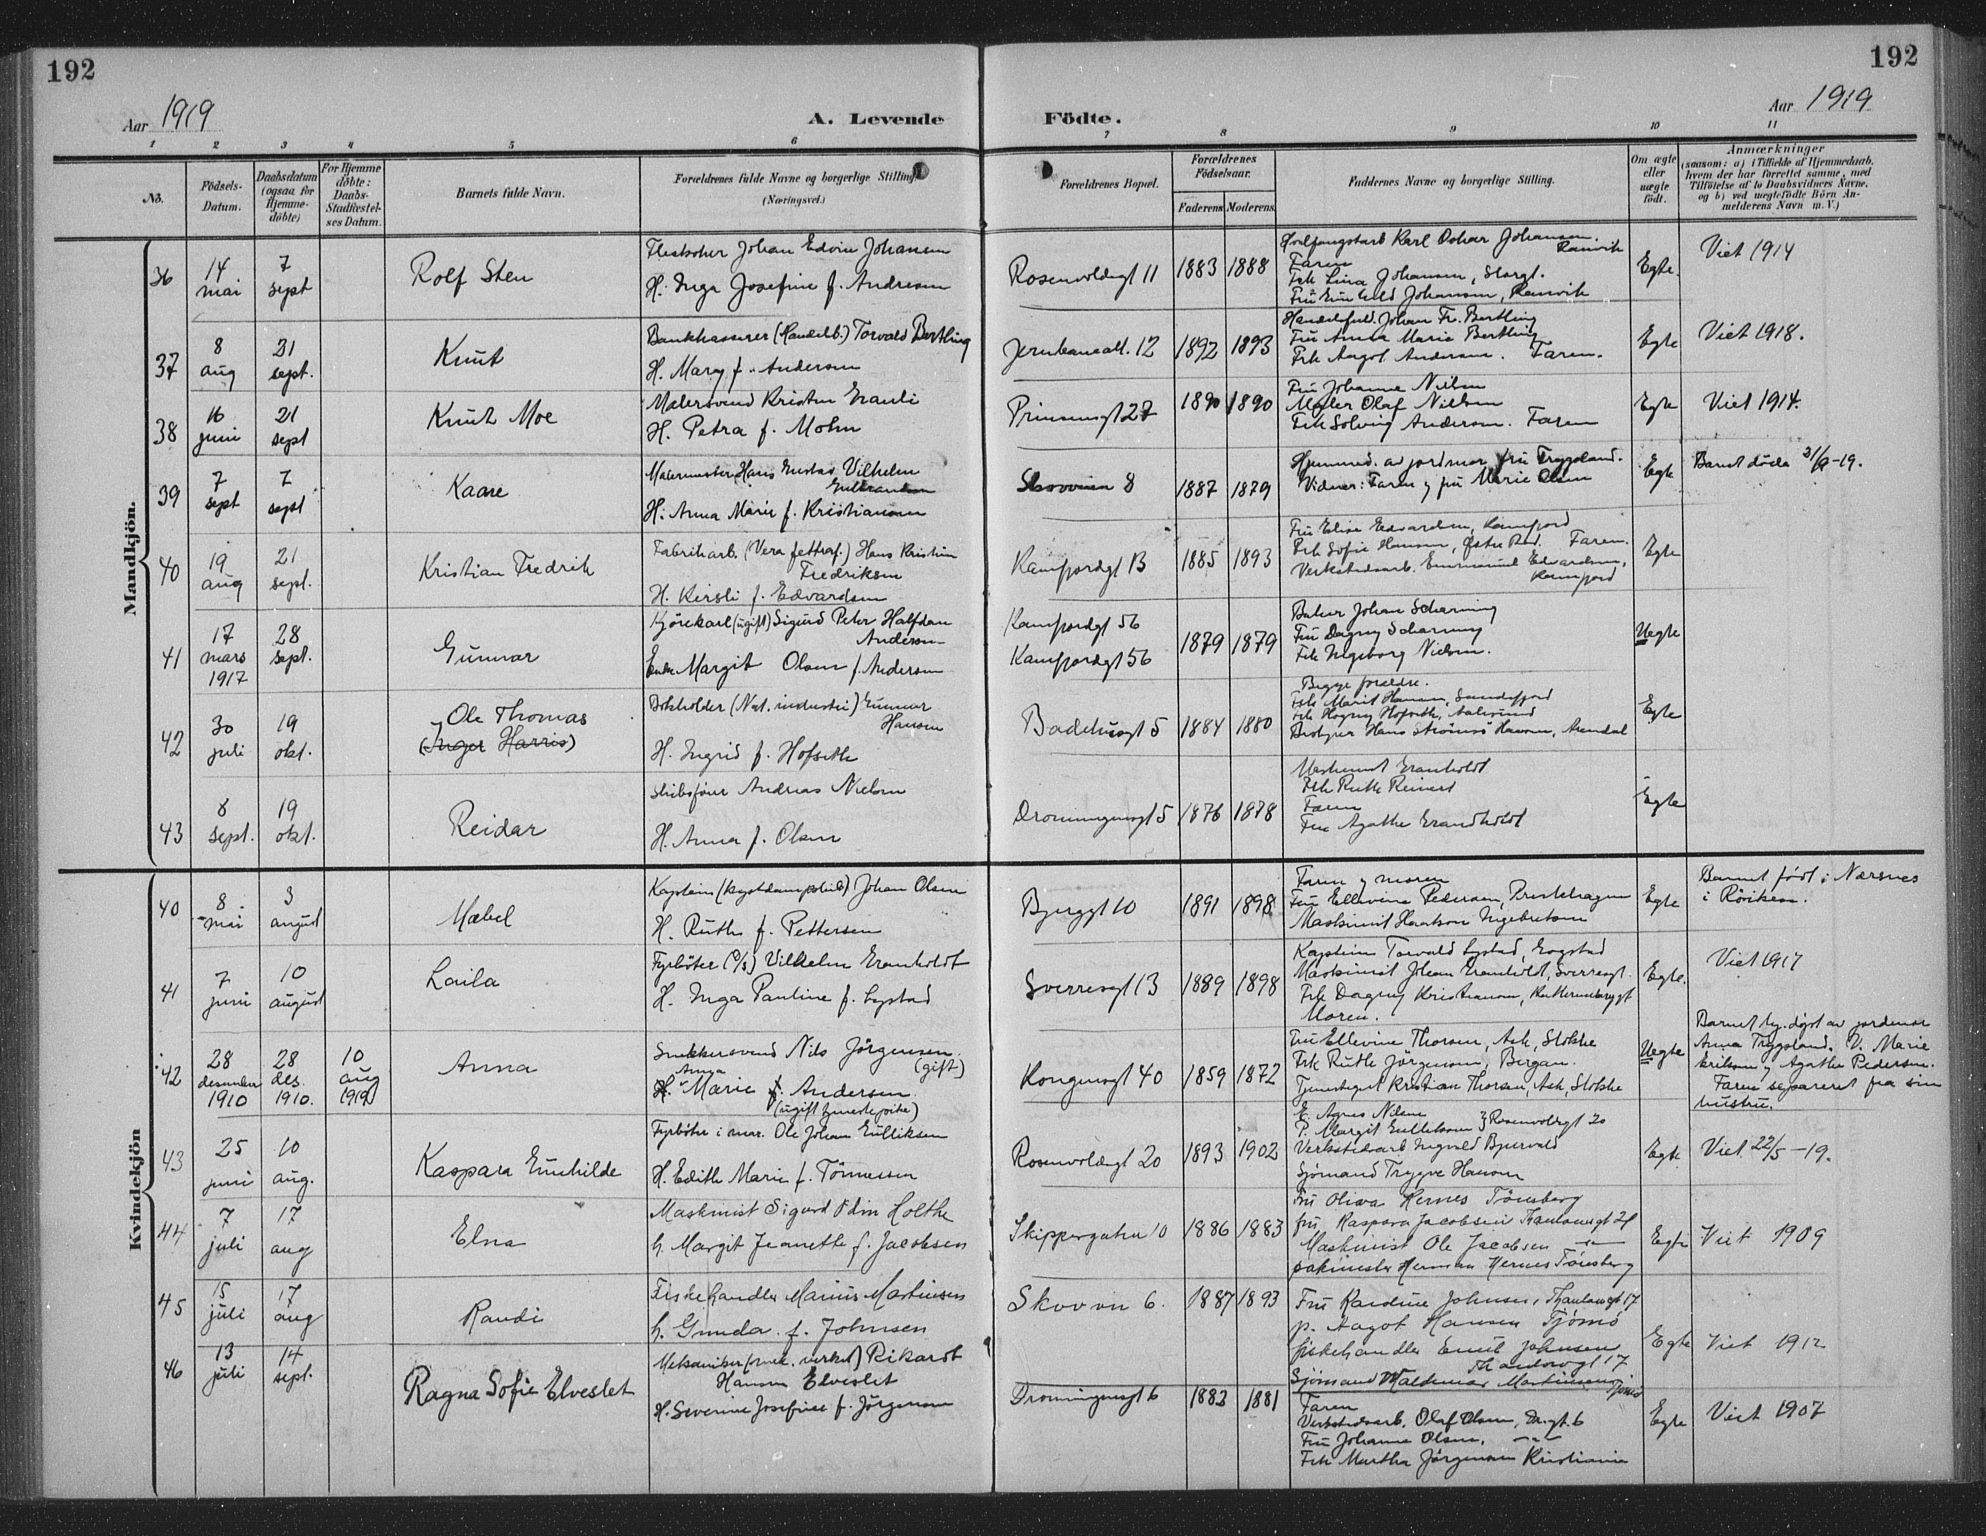 192
192
Aar 1919
A. Levende Födte.
Aar 1919
1 2 3 4 5 6 7 8 9 10 11
No.
Födsels-Datum.
Daabsdatum (ogsaa för Hjemme-döbte)
For Hjemme döbte: Daabs-Stadfæstel-ses Datum.
Barnets fulde Navn.
Forældrenes fulde Navne og borgerlige Stilling (Næringsvei.)
Forældrenes Bopæl.
Forældrenes Födselsaar.
Faderens Moderens
Faddernes Navne og borgerlige Stilling.
Om ægte eller uægte födt.
Anmærkninger
(saasom: a) i Tilfælde af Hjemmedaab, hvem der har forrettet samme, med Tilföielse af to Daabsvidners Navne, og b) ved uægtefödte Börn Anmelderens Navn m. V.)
Mandkjön.
36 14 mai 7 sept Rolf Sten
Johan Edvin Johansen
H. Inga Josefine f. Andresen
Rosenvoldsgt 11 1883 1888
Karl Oskar Johansen, Ranvik
Faren
Frk Lina Johansen, Storgt.
Johansen, Ranvik
Egte. Viet 1914
37 8 aug 21 sept. Knut
Bankkasserer (Handelsb.) Torvald Bertling
H. Mary f. Andersen
Jernbaneall. 12 1892 1893
Johan Fr. Bertling
Fru Anna Marie Bertling
Frk Aagot Andersen. Faren.
Egte Viet 1918.
38 16 juni 21 sept Knut Moe
Malersvend Kristen Grauli
H. Petra f. Mohn
Prinsensgt 27 1890 1890
Fru Johanne Nilsen
Maler Olaf Nielsen
Frk Solveig Andersen. Faren
Egte Viet 1914.
39 7 sept 7 sept Kaare
Malermester Hans Gustav Vilhelm Gulbrandsen
H. Anna Marie f. Kristiansen
Skovveien 8 1887 1879
Hjemmed. av jordmor fru Trygsland.
Vidner: Faren og fru Marie Olsen
Egte Barnet döde 21/9-19.
40 19 aug 21 sept. Kristian Fredrik
Fabrikarb. (Vera fettraf.) Hans Kristian Fredriksen
H. Kirsti f. Edvardsen
Kamfjordgt 13 1885 1893
Fru Elise Edvardsen, Kamfjord
Frk Sofie Hansen, Østre Rød. Faren.
Verkstedsarb. Emmanuel Edvardsen, Kamfjord
Egte
41 17 mars 1917 28 sept. Gunnar
Kjörekarl (ugift) Sigurd Peter Halfdan Andersen
Enke Margit Olsen f. Andersen
Kamfjordgt 56
Kamfjordgt 56
1879 1879
Baker Johan Scharning
Fru Dagny Scharning
Frk Ingeborg Nielsen.
Uegte
42 30 juli 19 okt. Ole Thomas
(Inger Harris)
Bokholder (Nat. industri) Gunnar Hansen
H. Ingrid f. Hofseth
Badehusgt 5 1884 1880
Begge forældre.
Frk Marit Hansen, Sandefjord
Hofseth, Aalesund
Hans Strömsö Hansen, Arendal
Egte
43 8 sept. 19 okt. Reidar
Skibsförer Andreas Nielsen
H. Anna f. Olsen
Dronningensgt 5 1876 1878
Maskinist Granholdt
Frk Ruth Reinert
Faren
Fru Agathe Grandholdt
Egte
Kvindekjön
40 8 mai 3 august Mabel
Kaptein (kystdampskib) Johan Olsen
H. Ruth f. Pettersen
Bjerggt 10 1891 1898
Faren og moren
Fru Ellevine Pedersen, Prestehagen
Maskinist Haakon Ingebretsen
Egte Barnet födt i Nærsnes i Röiken.
41 7 juni 10 august Laila
Fyrböter (P/s) Vilhelm Granholdt
H. Inga Pauline f. Lystad
Sverresgt 13 1889 1898
Kaptein Torvald Lystad, Gogstad
Maskinist Johan Granholdt, Sverresgt.
Frk Dagny Kristiansen,
Moren.
Egte. Viet 1917
42 28 desember 1910 28 des. 1910. 10 aug 1919 Anna
Snekkersvend Nils Jörgensen. (gift)
H. Anna Marie f. Andersen. (ugift tjenestepike)
Kongensgt 40 1859 1872
Fru Ellevine Thorsen, Ask, Stokke
Frk Ruth Jörgensen, Bergan.
Tjenestegut Kristian Thorsen, Ask, Stokke
Uegte
Barnet hj. döpt av jordmor Anna Trygsland. V. Marie Eriksen og Agathe Pedersen.
Faren separeret fra sin hustru.
43 25 juni 10 aug. Kaspara Gunhilde
Fyrböter i mar. Ole Johan Gulliksen
H. Edith Marie f. Tönnessen
Rosenvoldsgt 20 1893 1902
F. Agnes Nilsen
P. Margit Gulliksen } Rosenvoldsgt 20
Verkstedsarb Ingvald Bjervald
Sjömand Trygve Hansen
Egte Viet 22/5-19.
44 7 juli 17 aug Elna
Maskinist Sigurd Odin Holthe
h. Margit Jeanette f. Jacobsen
Skippergaten 10 1886 1883
Fru Olivia Hernes Tönsberg
fru Kaspara Jacobsen Thaulowsgt 21
Maskinist Ole Jacobsen —"—
Herman Hernes Tönsberg
Egte Viet 1909
45 15 juli 17 aug Randi
Fiskehandler Marius Martinsen
h. Gunda f. Johnsen
Skovvn 6. 1887 1893
Fru Karoline Johnsen, Thaulowgt 17
p. Aagot Hansen Tjömö
fiskehandler Emil Johnsen Thaulowgt 17
Sjömand Waldemar Martinsen Tjömö
Egte Viet 1912
46 13 juli 14 sept. Ragna Sofie Elveslet
Mekaniker (mek. verkst) Rikardt Hansen Elveslet
H. Severine Josefine f. Jörgensen
Dronningensgt 6 1883 1881
Faren
Verkstedsarb. Olaf Olsen, Dr.gt. 6
Fru Johanne Olsen, —"—
Frk Martha Jörgensen Kristiania
Egte Viet 1907